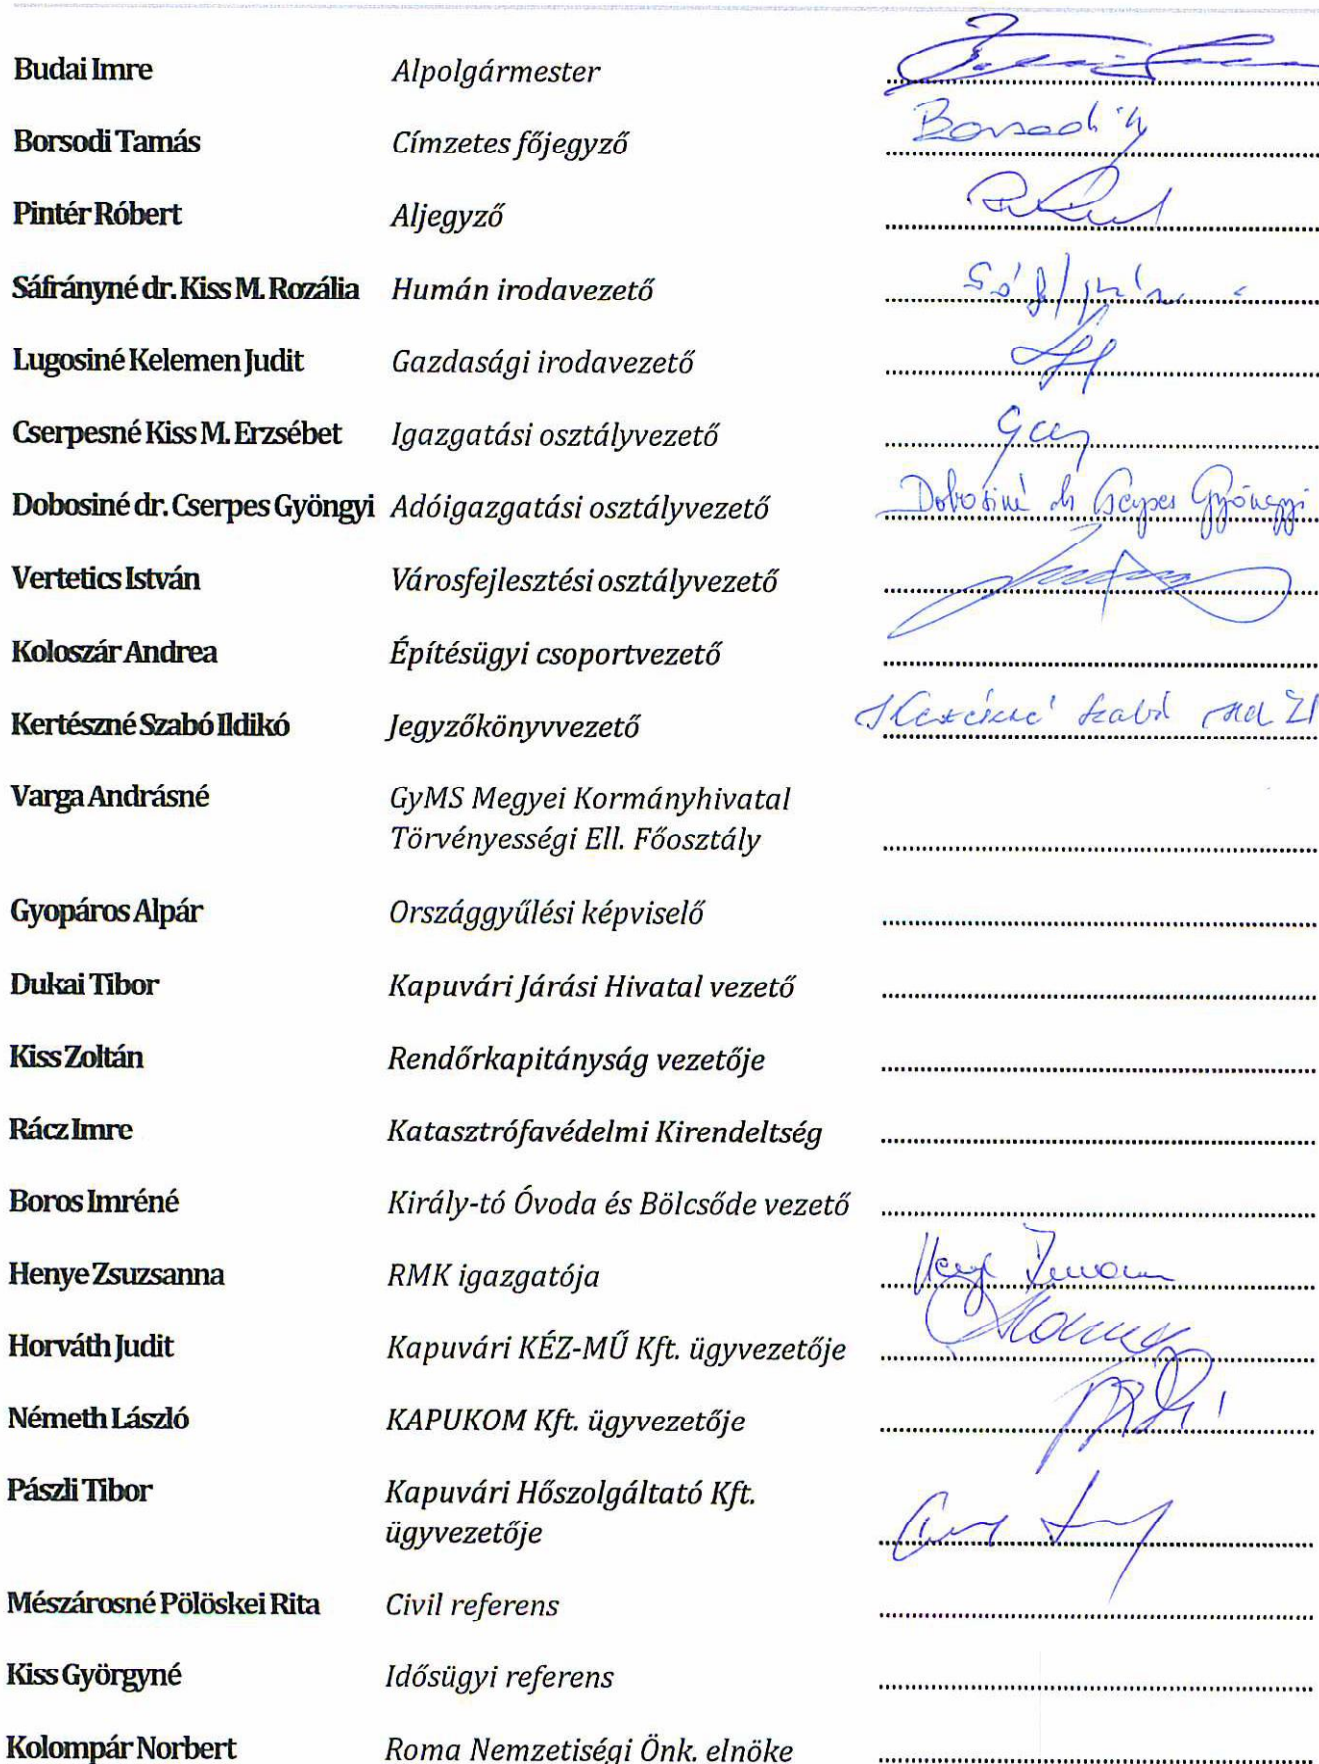 Budai Imre Alpolgármester
Borsodi Tamás Címzetes főjegyző Borsodi
Pintér Róbert Aljegyző
Sáfrányné dr. Kiss M. Rozália Humán irodavezető
Lugosiné Kelemen Judit Gazdasági irodavezető
Cserpesné Kiss M. Erzsébet Igazgatási osztályvezető
Dobosiné dr. Cserpes Gyöngyi Adóigazgatási osztályvezető Dobosiné dr Cserpes Gyöngyi
Vertetics István Városfejlesztési osztályvezető
Koloszár Andrea Építésügyi csoportvezető
Kertészné Szabó Ildikó Jegyzőkönyvvezető Szabó
Varga Andrásné GyMS Megyei Kormányhivatal
Törvényességi Ell. Főosztály
Gyopáros Alpár Országgyűlési képviselő
Dukai Tibor Kapuvári Járási Hivatal vezető
Kiss Zoltán Rendőrkapitányság vezetője
Rácz Imre Katasztrófavédelmi Kirendeltség
Boros Imréné Király-tó Óvoda és Bölcsőde vezető
Henye Zsuzsanna RMK igazgatója
Horváth Judit Kapuvári KÉZ-MŰ Kft. ügyvezetője
Németh László KAPUKOM Kft. ügyvezetője
Pászli Tibor Kapuvári Hőszolgáltató Kft.
ügyvezetője
Mészárosné Pölöskei Rita Civil referens
Kiss Györgyné Idősügyi referens
Kolompár Norbert Roma Nemzetiségi Önk. elnöke